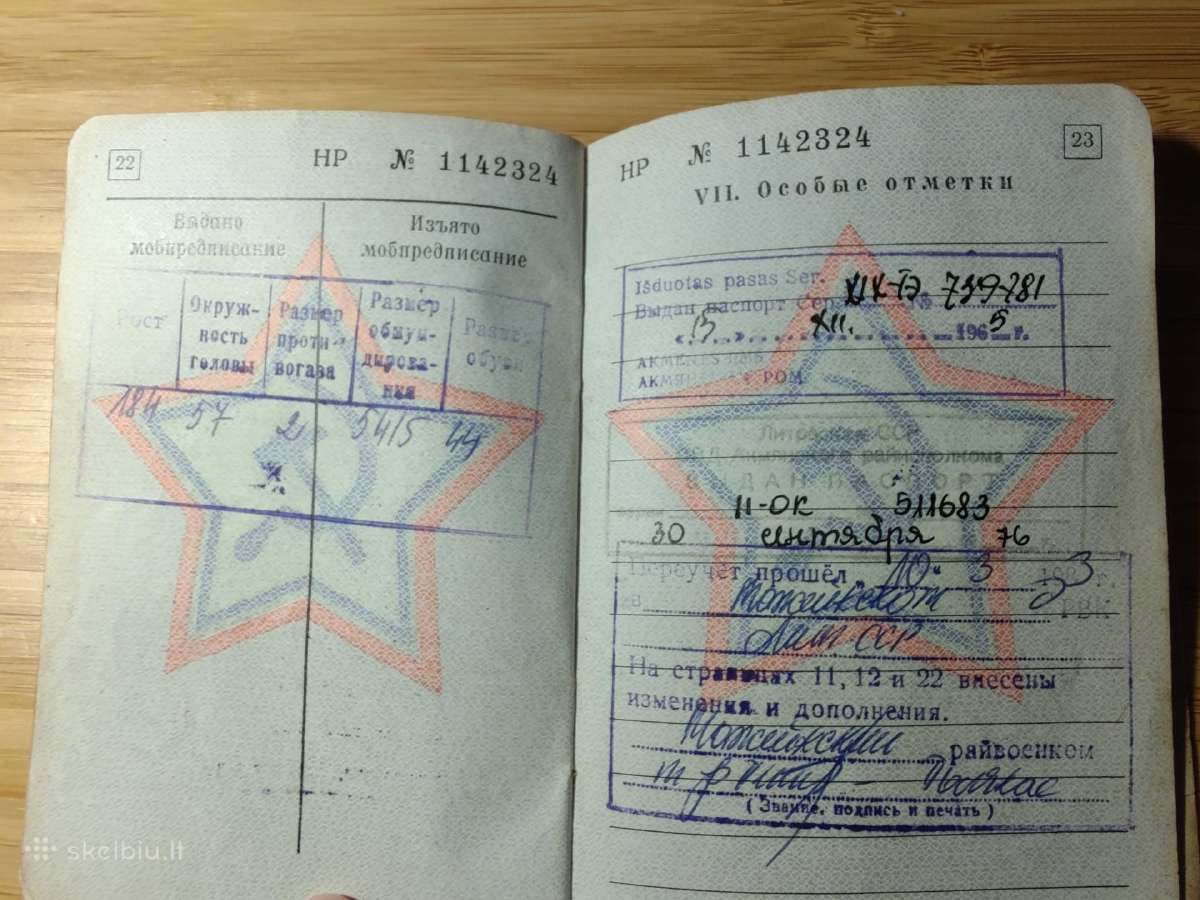 22
НР № 1142324
Выдано мобпредписание
Изъято мобпредписание
Рост
Окруж-
ность
головы
Размер
проти-
вогаза
Размер
обмун-
дирова-
ния
Размер
обуви
184 57 2 54/5 44
НР № 1142324
23
VII. Особые отметки
Išduotas pasas Ser.
Выдан паспорт Серия XIX-ГЭ № 739781
« 15 » XII. 1965 г.
AKMENĖS
АКМЯН РОМ
Литовская ССР
райисполкома
ВЫДАН ПАСПОРТ
II-ОК 511683
30 сентября 76
Переучёт прошёл „ 10 “ 3 198 3 г.
в РВК
Лит ССР
На страницах 11, 12 и 22 внесены
изменения и дополнения.
райвоенком
(Звание, подпись и печать)
skelbiu.lt